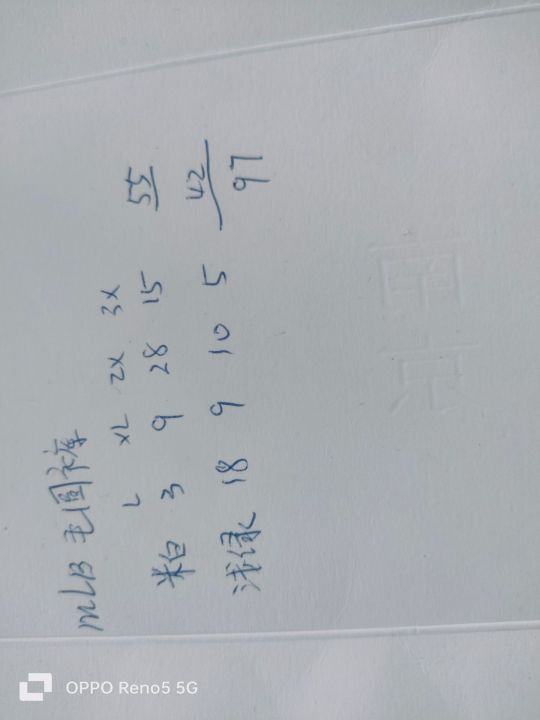 MLB 毛圈卡库
L XL 2X 3X
米白 3 9 28 15 55
浅绿 18 9 10 5 42
97
南京
OPPO Reno5 5G